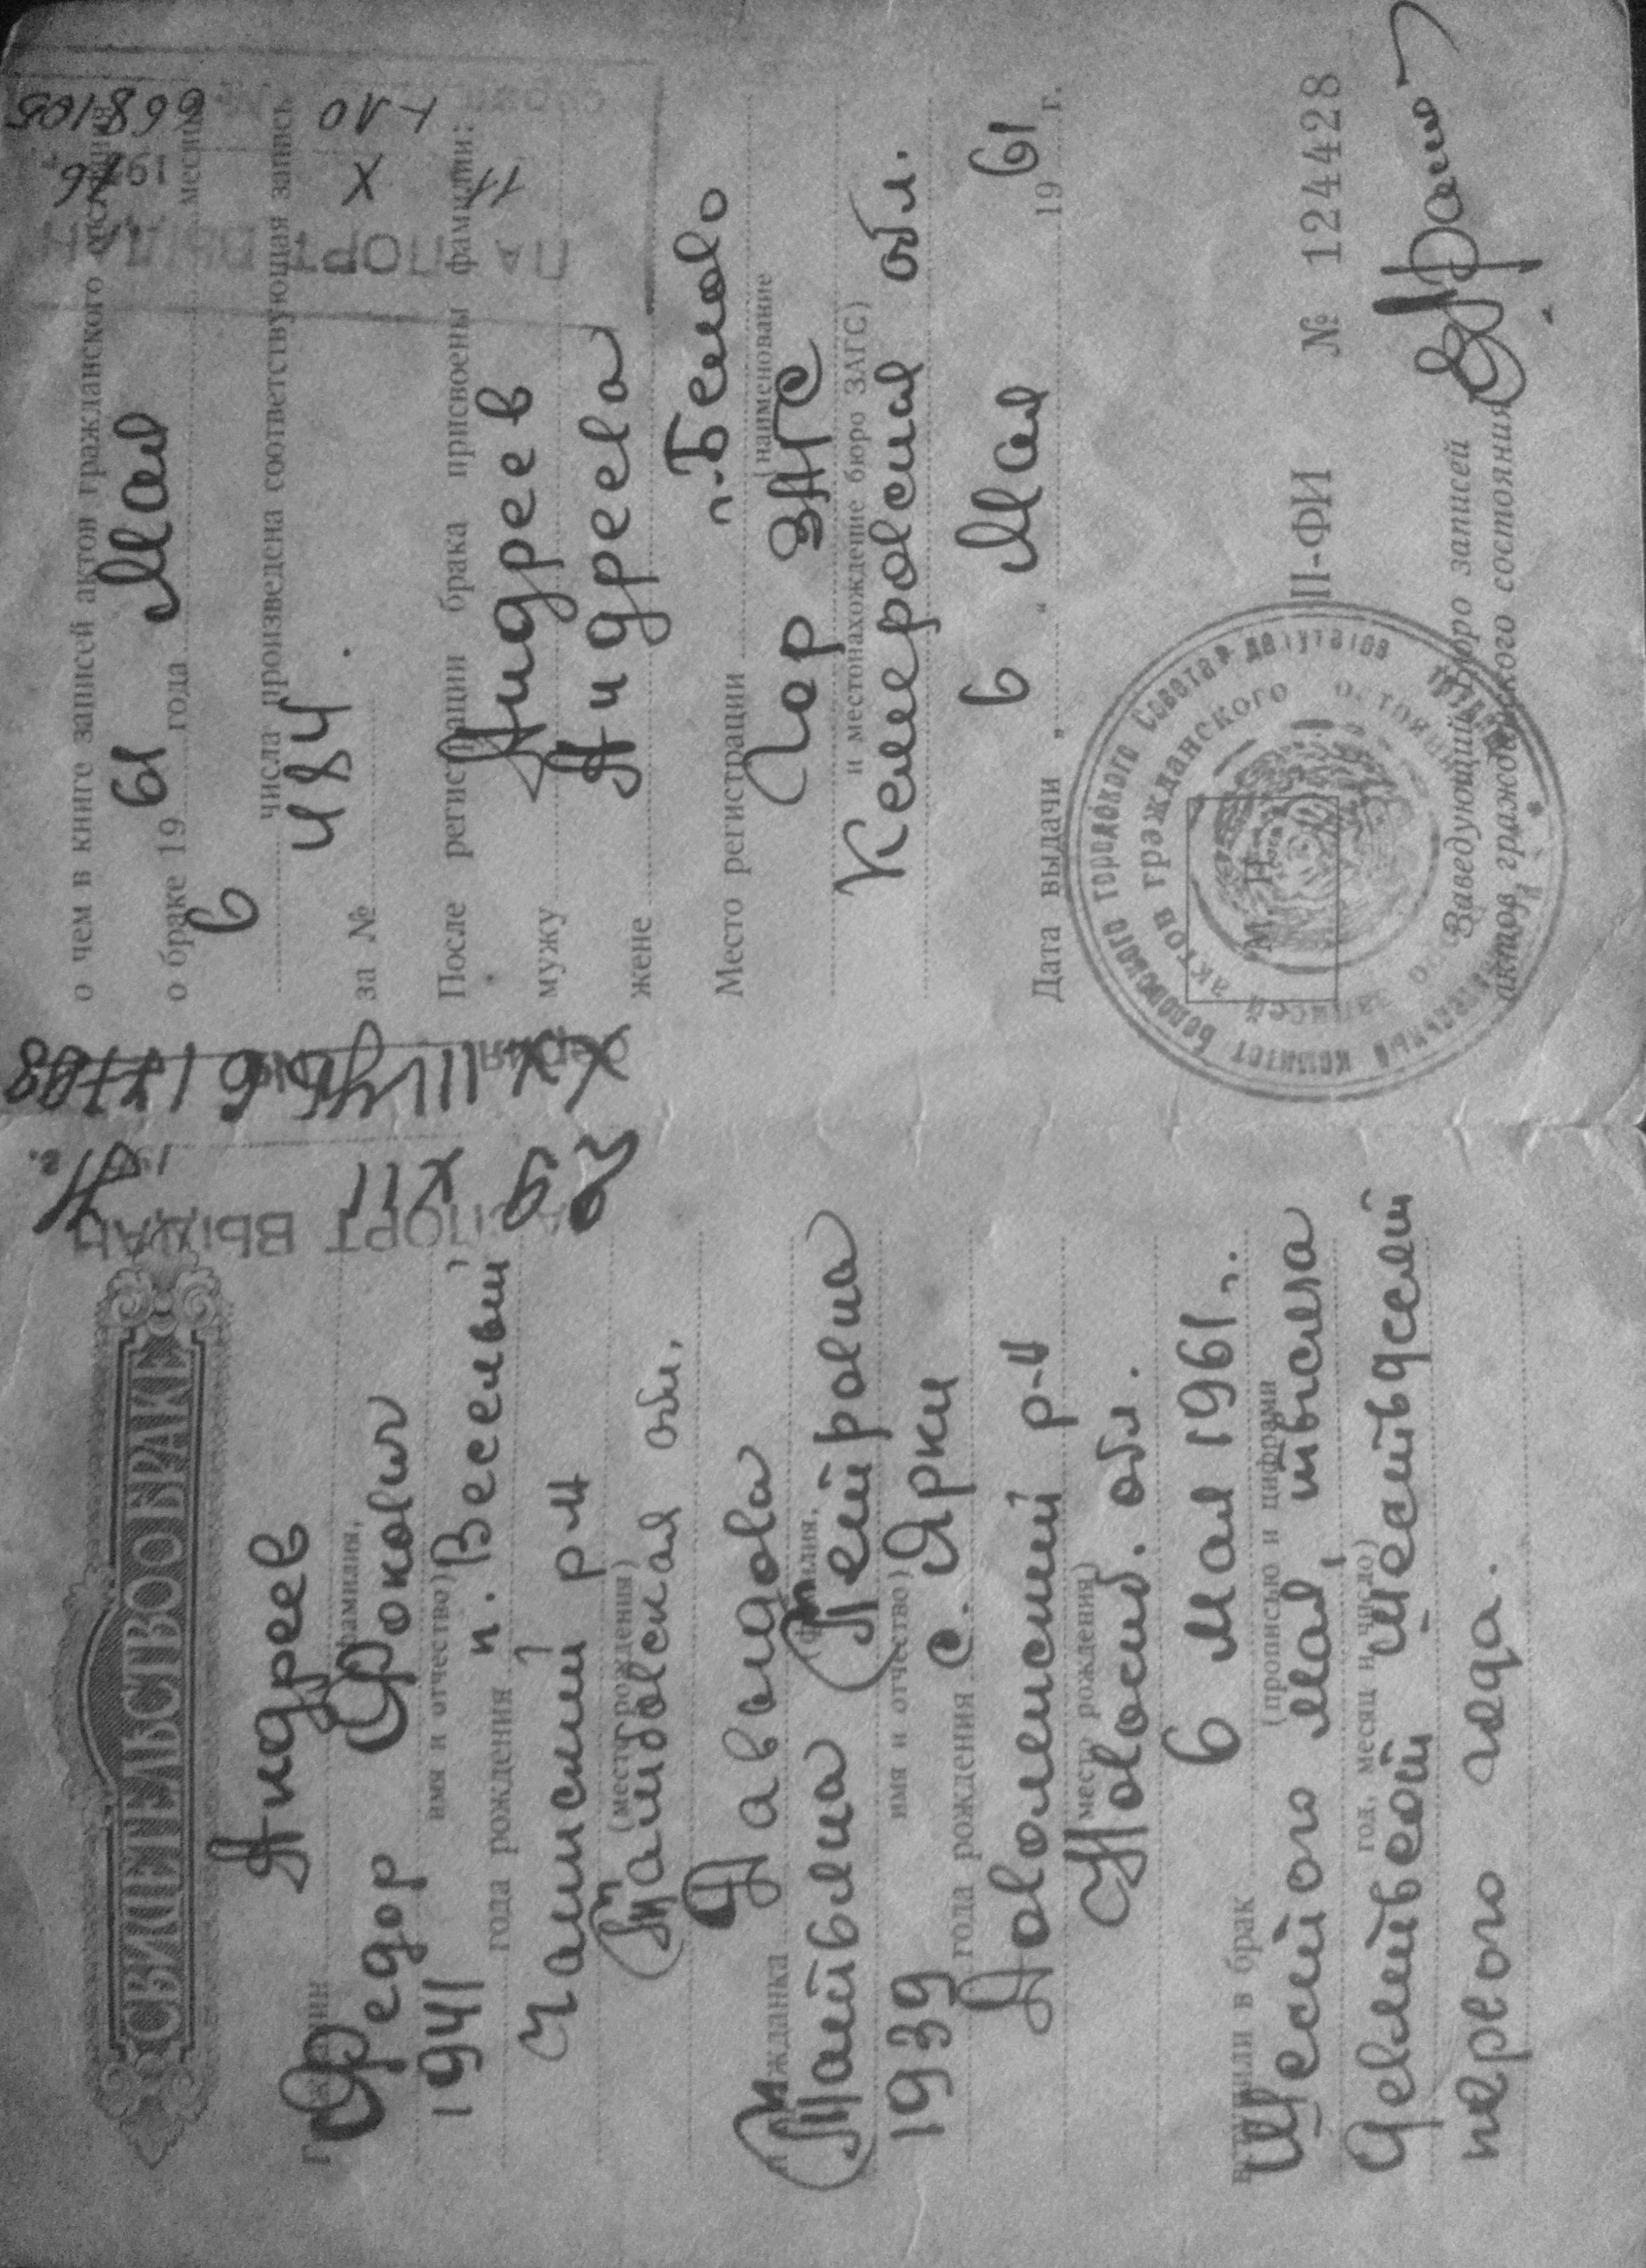 СВИДЕТЕЛЬСТВО О БРАКЕ
Гражданин Андреев
(фамилия,
Федор Фокович
имя и отчество)
1941 года рождения п. Веселый
Чаинский р-н
(место рождения)
Тамбовская обл.
и гражданка Давыдова
(фамилия,
Татьяна Петровна
имя и отчество)
1939 года рождения с. Ярки
Доволенский р-н
(место рождения)
Новосиб. обл.
вступили в брак 6 мая 1961 г.
(прописью и цифрами
Шестого мая, тысяча
год, месяц и число)
девятьсот шестьдесят
первого года.
ПАСПОРТ ВЫДАН
29 XII
серия
о чем в книге записей актов гражданского состояния
о браке 19 61 года Мая месяца
6 числа произведена соответствующая запись
за № 484.
После регистрации брака присвоены фамилии:
мужу Андреев
жене Андреева
Место регистрации г. Белово
(наименование
Гор ЗАГС
и местонахождение бюро ЗАГС)
Кемеровская обл.
Дата выдачи „ 6 “ Мая 19 61 г.
М. П.
II-ФИ № 124428
Заведующий бюро записей
актов гражданского состояния
ПАСПОРТ ВЫДАН
11 X 1976
668105
исполнительный комитет Беловского городского Совета депутатов трудящихся
бюро записей актов гражданского состояния